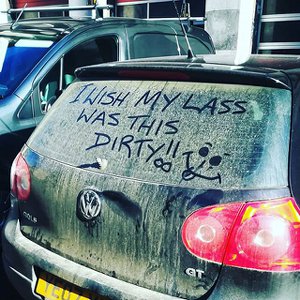 I WISH MY LASS
WAS THIS
DIRTY!!
GOLF
GT